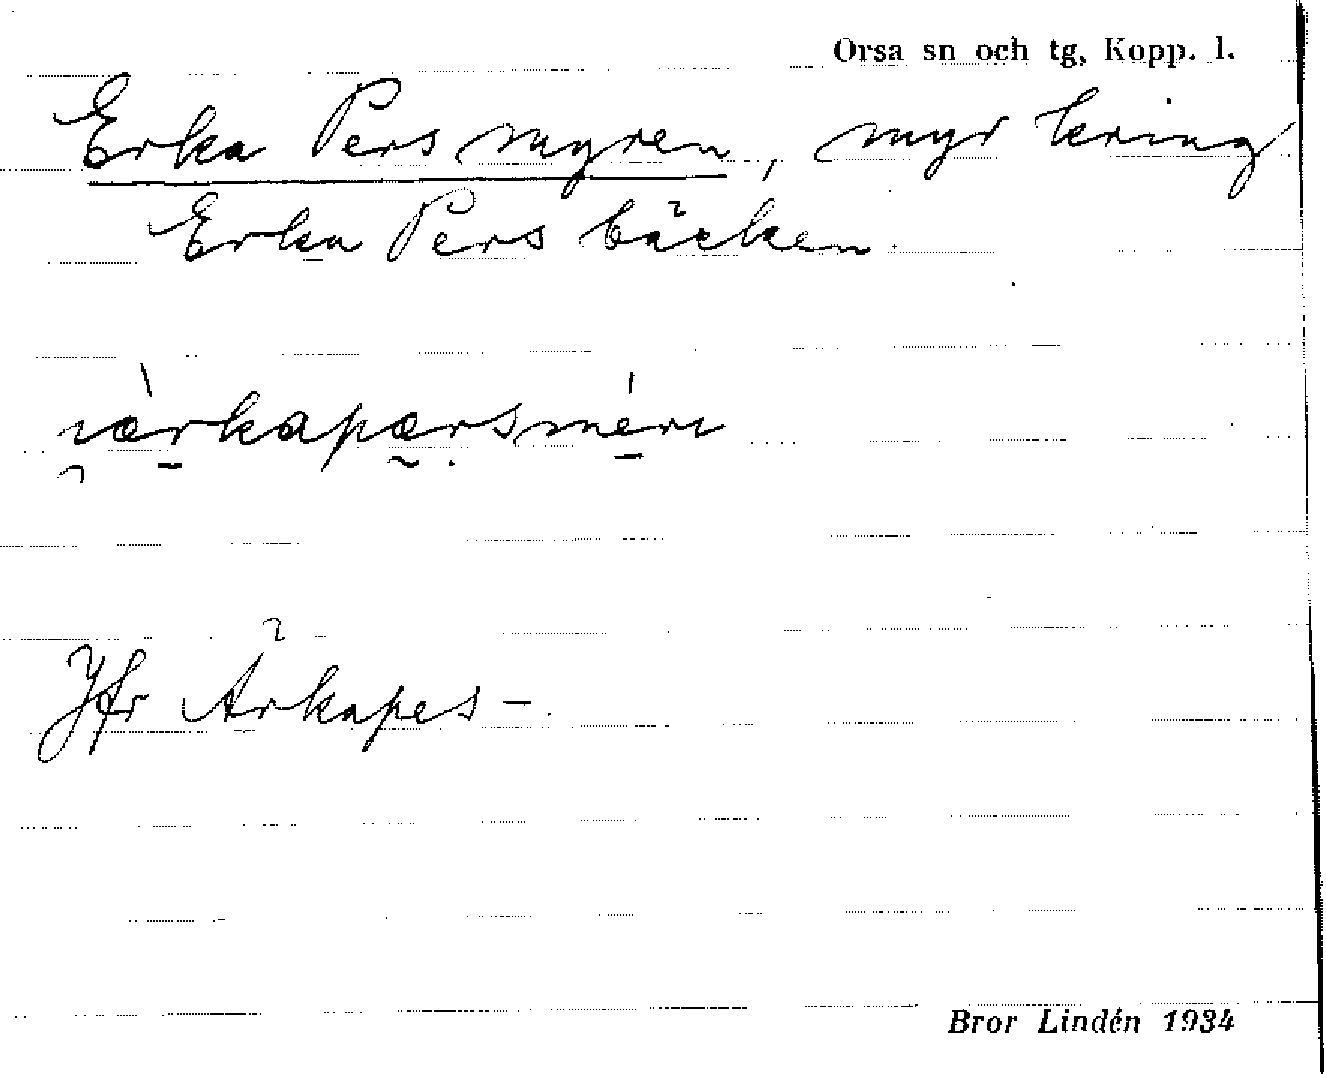 Orsa sn och tg, Kopp. l.
Erka Persmyren, myr kring
Erka Persbäcken.
Jfr Ärkapes-.
Bror Lindén 1934